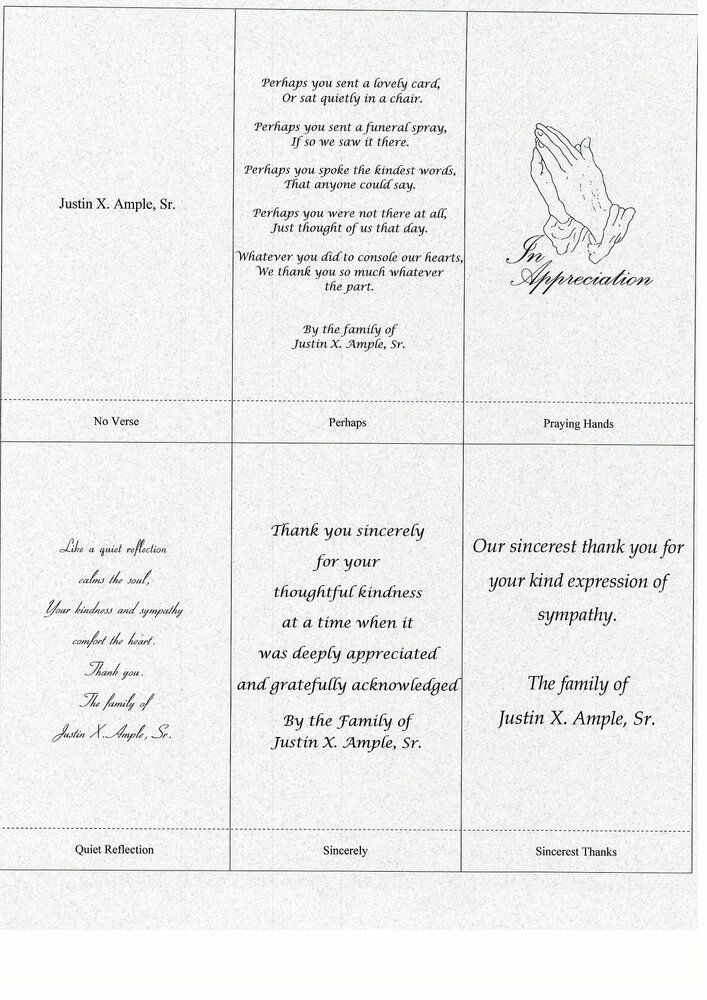 Justin X. Ample, Sr.
No Verse
Perhaps you sent a lovely card,
Or sat quietly in a chair.
Perhaps you sent a funeral spray,
If so we saw it there.
Perhaps you spoke the kindest words,
That anyone could say.
Perhaps you were not there at all,
Just thought of us that day.
Whatever you did to console our hearts,
We thank you so much whatever
the part.
By the family of
Justin X. Ample, Sr.
Perhaps
In
Appreciation
Praying Hands
Like a quiet reflection
calms the soul,
Your kindness and sympathy
comfort the heart.
Thank you.
The family of
Justin X. Ample, Sr.
Quiet Reflection
Thank you sincerely
for your
thoughtful kindness
at a time when it
was deeply appreciated
and gratefully acknowledged
By the Family of
Justin X. Ample, Sr.
Sincerely
Our sincerest thank you for
your kind expression of
sympathy.
The family of
Justin X. Ample, Sr.
Sincerest Thanks